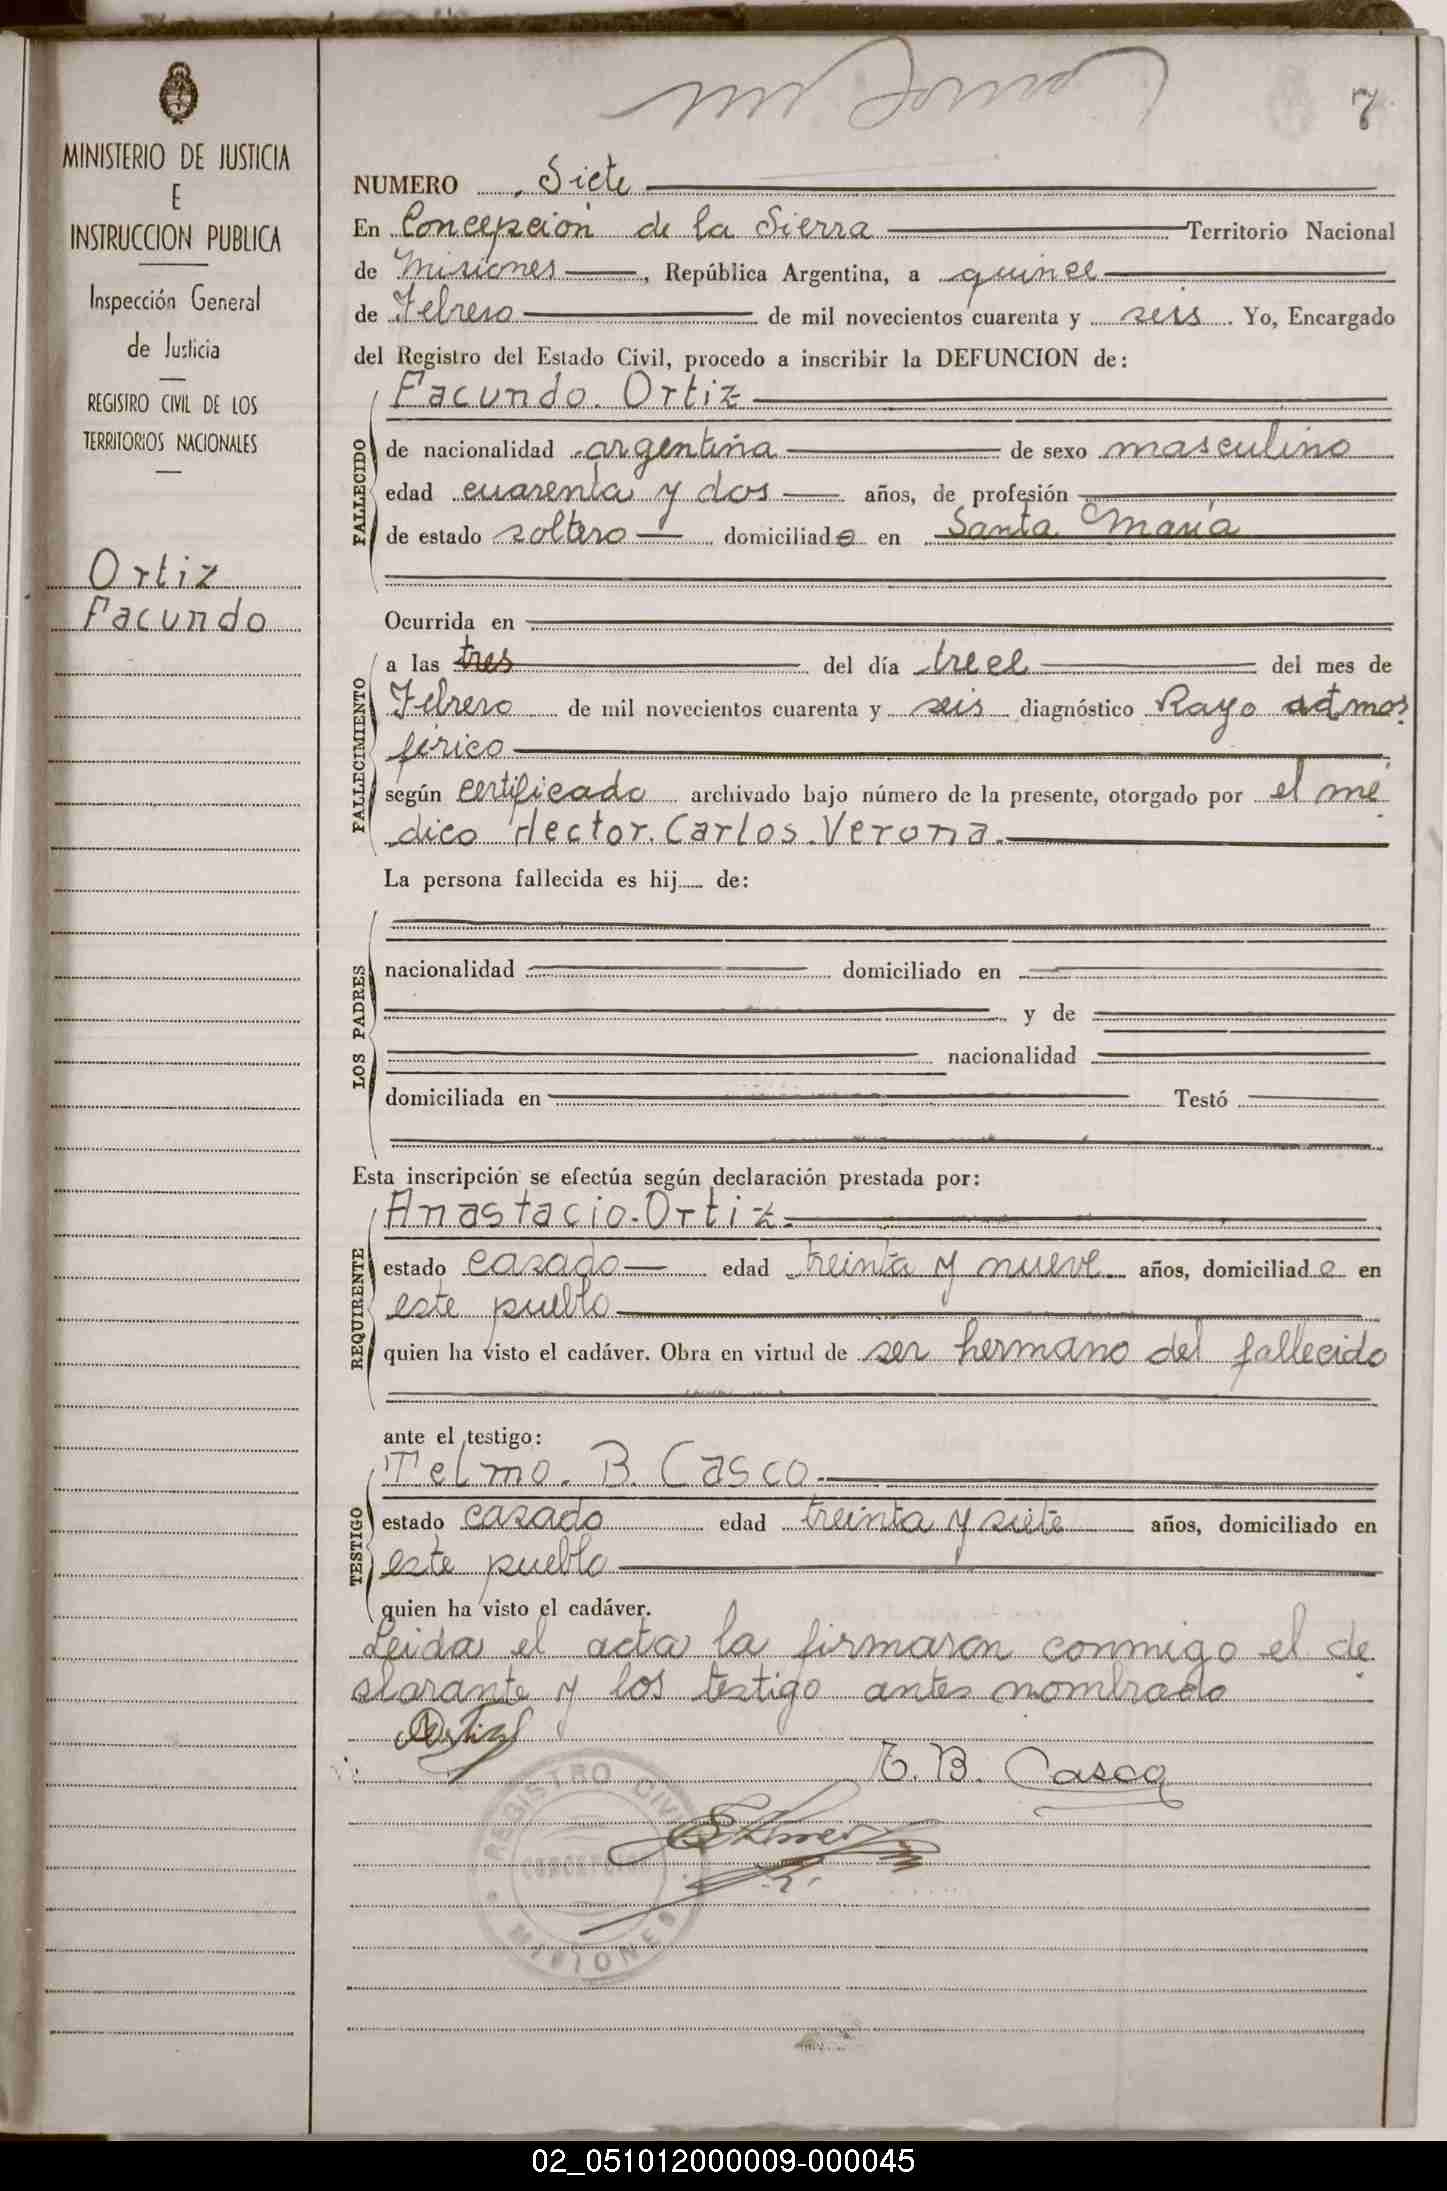 7
MINISTERIO DE JUSTICIA
E
INSTRUCCION PUBLICA
Inspección General
de Justicia
REGISTRO CIVIL DE LOS
TERRITORIOS NACIONALES
Ortiz
Facundo
NUMERO Siete
En Concepción de la Sierra Territorio Nacional
de Misiones, República Argentina, a quince
de Febrero de mil novecientos cuarenta y seis. Yo, Encargado
del Registro del Estado Civil, procedo a inscribir la DEFUNCION de:
FALLECIDO
Facundo. Ortiz
de nacionalidad argentina de sexo masculino
edad cuarenta y dos años, de profesión
de estado soltero domiciliado en Santa María
FALLECIMIENTO
Ocurrida en
a las tres del día trece del mes de
Febrero de mil novecientos cuarenta y seis diagnóstico Rayo adtmos
férico
según certificado archivado bajo número de la presente, otorgado por el mé
dico Hector. Carlos. Verona.
LOS PADRES
La persona fallecida es hij de:
nacionalidad domiciliado en
y de
nacionalidad
domiciliada en Testó
Esta inscripción se efectúa según declaración prestada por:
REQUIRENTE
Anastacio. Ortiz.
estado casado edad treinta y nueve años, domiciliado en
este pueblo
quien ha visto el cadáver. Obra en virtud de ser hermano del fallecido
ante el testigo:
TESTIGO
Telmo. B. Casco.
estado casado edad treinta y siete años, domiciliado en
este pueblo
quien ha visto el cadáver.
Leida el acta la firmaron conmigo el de
clarante y los testigo antes nombrado
T. B. Casco
REGISTRO CIVIL
CONCEPCION
MISIONES
02_051012000009-000045